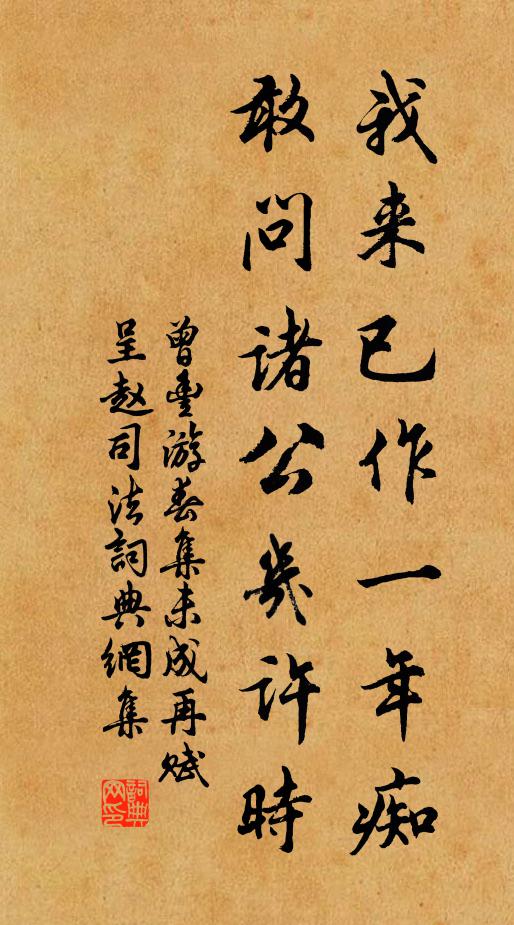 我来已作一年痴
敢问诸公几许時
曾豐游春集未成再赋
呈赵司法詞典網集
詞典網印